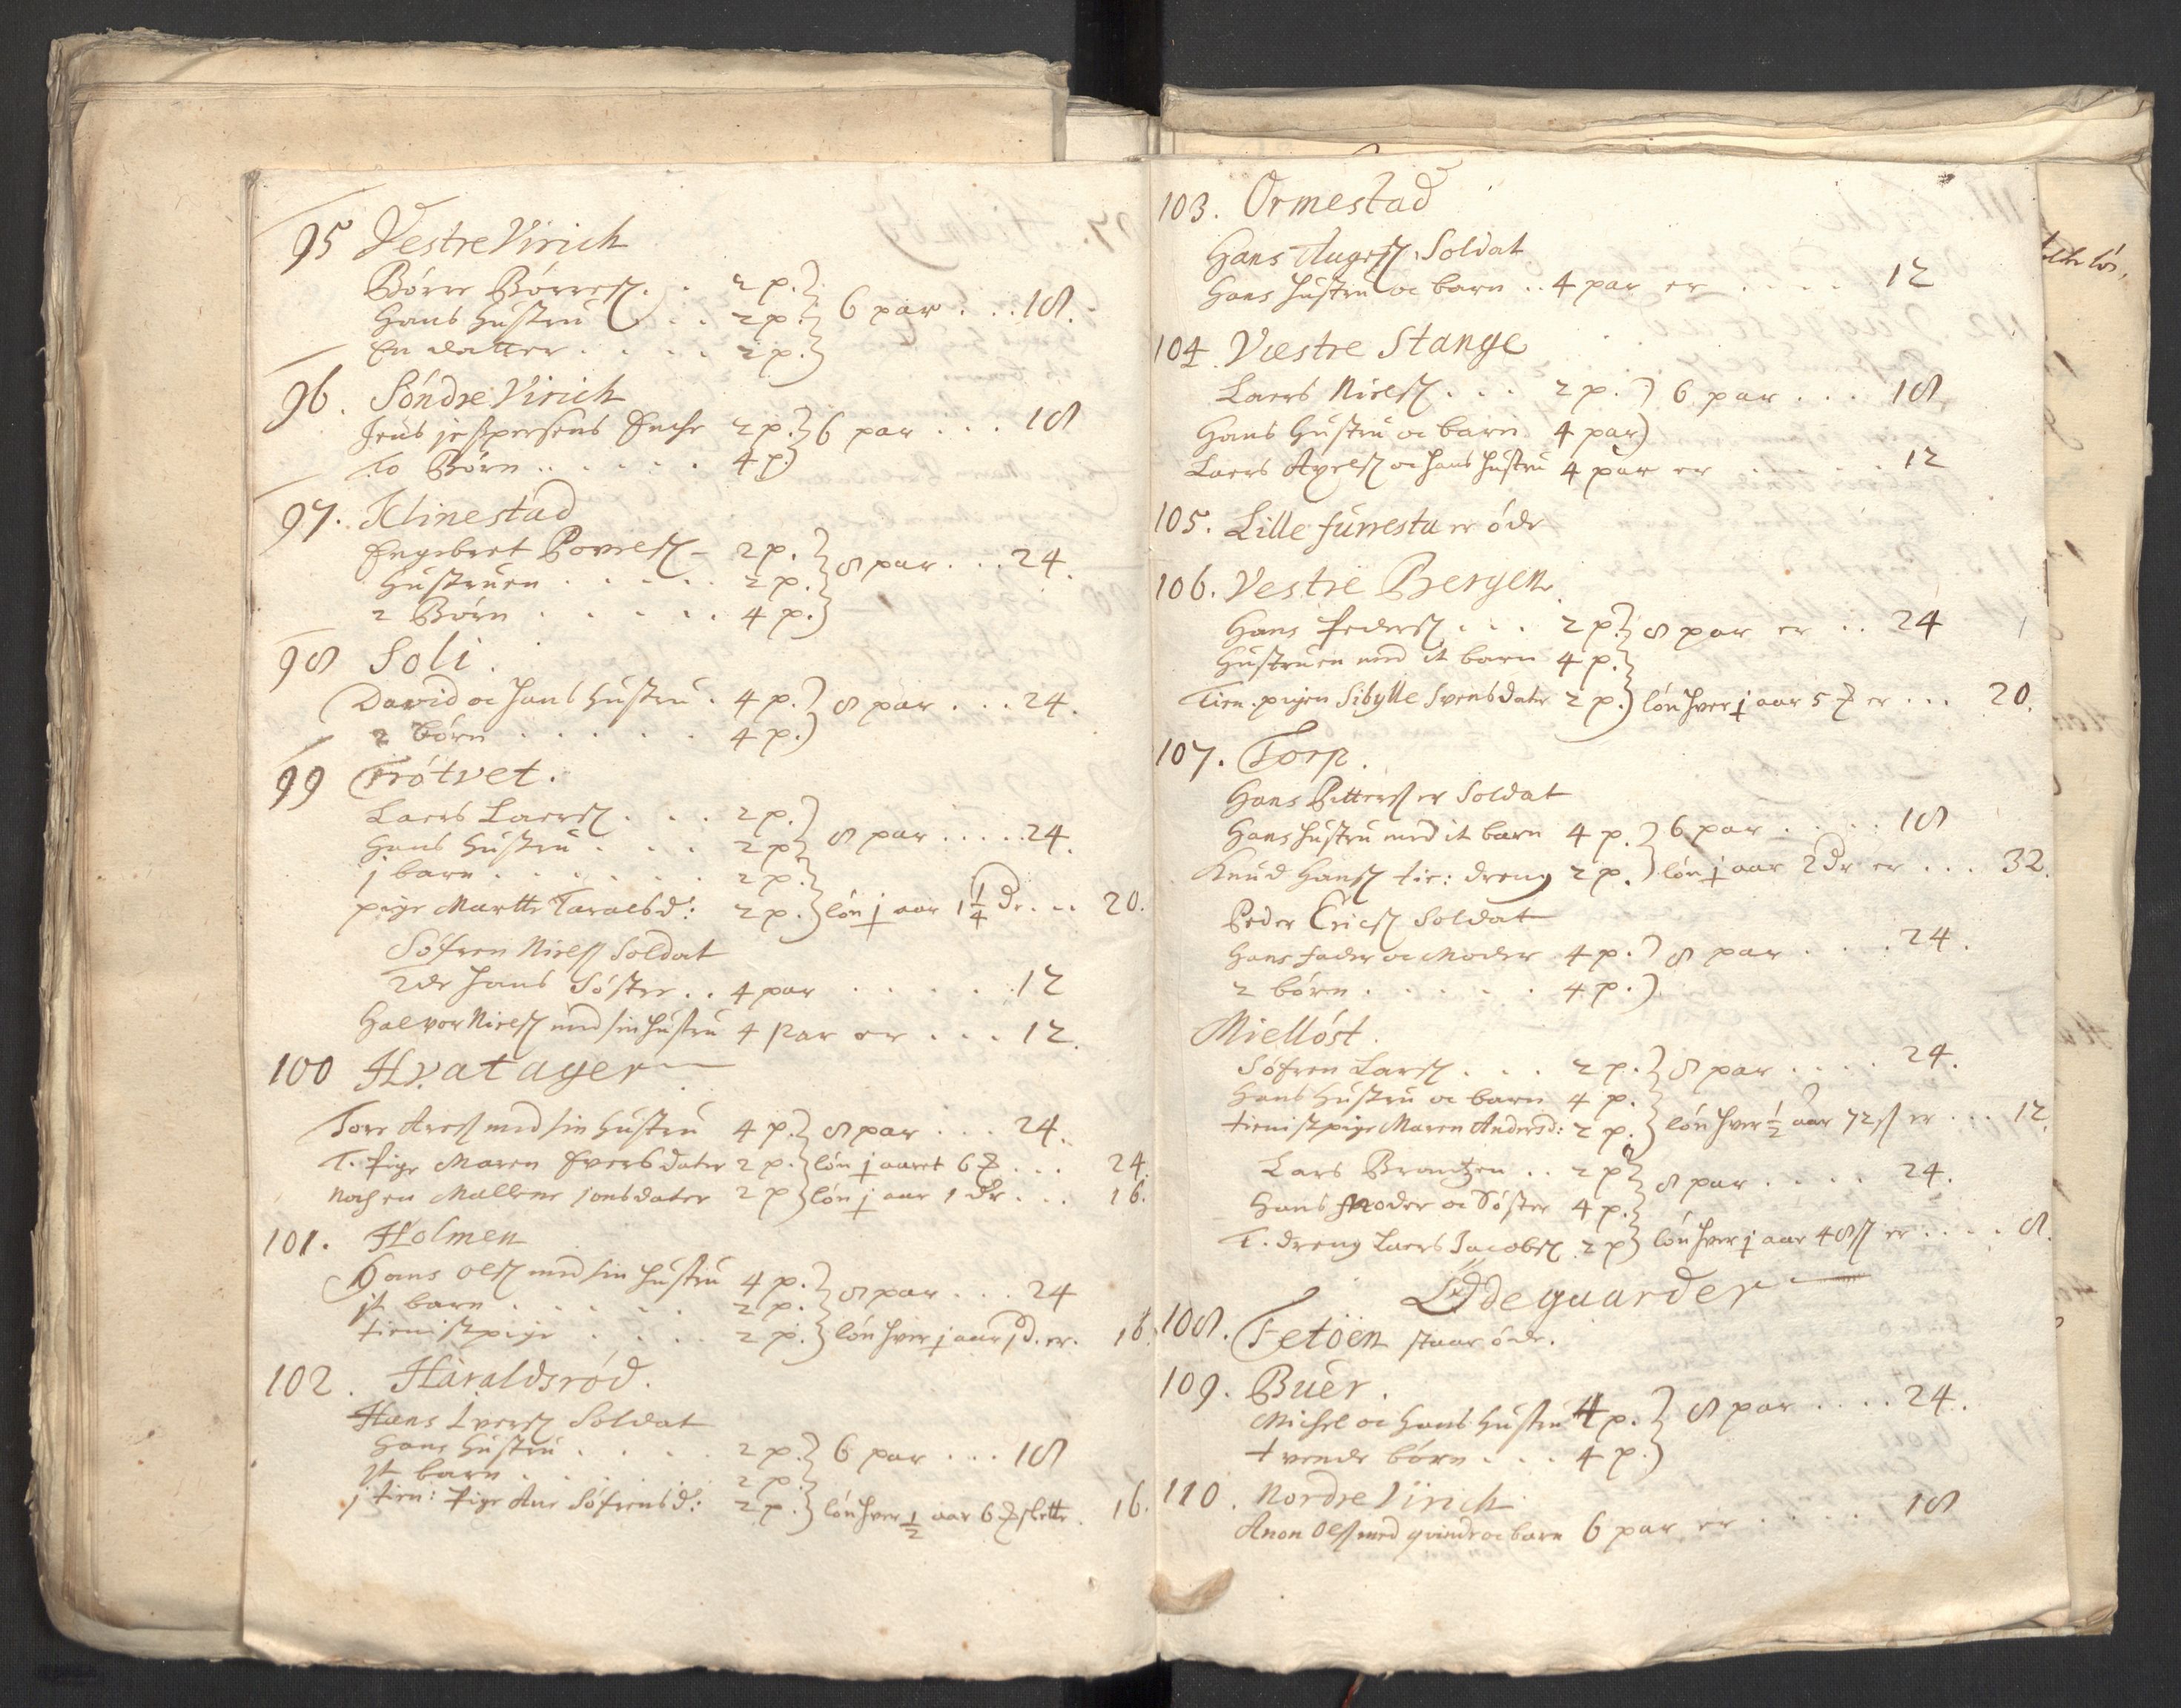 95 Vestre Virich
Börre Börres. . . 2 p.
Hans Hustru . . 2 p. } 6 par . . . 18.
En datter . . . . 2 p.
96. Söndre Virich
Jens jespersens Enche 2 p. } 6 par . . . 18
To Börn . . . . . 4 p.
97. Klinestad
Engebret Povels. – 2 p. } 8 par . . . 24.
Hustruen . . . . . 2 p.
2 Börn . . . . . 4 p.
98 Soli.
David oc hans Hustru . 4 p. } 8 par . . . 24.
2 börn . . . . . 4 p.
99 Trötvet.
Laers Laers. . . . 2 p.
Hans Hustru . . . 2 p. } 8 par . . . . . 24.
j barn . . . . . . 2 p.
pige Marthe Taralsd: 2 p. } lön j aar 1 1/4 dr. . . 20.
Söfren Niels. Soldat
2de hans Söster . . 4 par . . . . . . 12
Halvor Niels. med sin hustru 4 par er . . . 12.
100 Hvatager
Tore Ares. med sin Hustru 4 p. } 8 par . . . 24.
T. Pige Maren Eversdater 2 p. } lön j aaret 6 . . . 24.
Noch en Mallene jonsdater 2 p } lön j aar 1 dr . . . 16.
101. Holmen
Hans Ols. med sin Hustru 4 p. } 8 par . . . 24
jt barn . . . . . 2 p.
tienistpige . . . . 2 p. } lön hver j aar 1 d. er. 16.
102. Haraldsröd.
Hans Ivers. Soldat
Hans Hustru . . . . 2 p. } 6 par . . . 18
jt barn . . . . . 2 p.
j tien: Pige Ane Söfrensd: 2 p. } lön hver 1/2 aar 6 slette . 16.
103. Ormestad
Hans Auges. Soldat
Hans Hustru oc barn . . 4 par er . . . . 12
104. Vestre Stange
Laers Niels. . . . 2 p. } 6 par . . . 18
Hans Hustru oc barn 4 par
Laers Axels. oc hans Hustru 4 par er . . . . 12
105. Lille furresta er öde
106. Vestre Bergen
Hans Peders. . . . 2 p. } 8 par er . . 24
Hustruen med it barn 4 p.
Tien. pigen Sibylle Svensdater 2 p. } lön hver j aar 5 er . . . 20.
107. Torp.
Hans Pitters. er Soldat
Hans hustru med it barn 4 p. } 6 par . . . . 18
Knud Hans. tie: dreng 2 p. } lön j aar 2 dr er . . . 32.
Peder Erics. Soldat
Hans fader oc Moder 4 p. } 8 par . . . 24.
2 börn . . . . . 4 p.
Miellöst.
Söfren Lars. . . . 2 p. } 8 par . . . . 24.
Hans Hustru oc barn 4 p.
tienistpige Maren Andersd: 2 p. } lön hver 1/2 aar 72 ß er . . . 12.
Lars Brantzen . . 2 p } 8 par . . . . 24.
Hans Moder oc Söster 4 p.
T. dreng Laers Jacobs. 2 p } lön hver j aar 48 ß er . . . . 8.
Ödeguarder
108. Fetöen staar öde.
109. Buer.
Michel oc Hans Hustru 4 p. } 8 par . . . . 24.
tvende börn . . . 4 p.
110. Nordre Virich
Anon Ols. med qvinde oc barn 6 par er . . . . 18